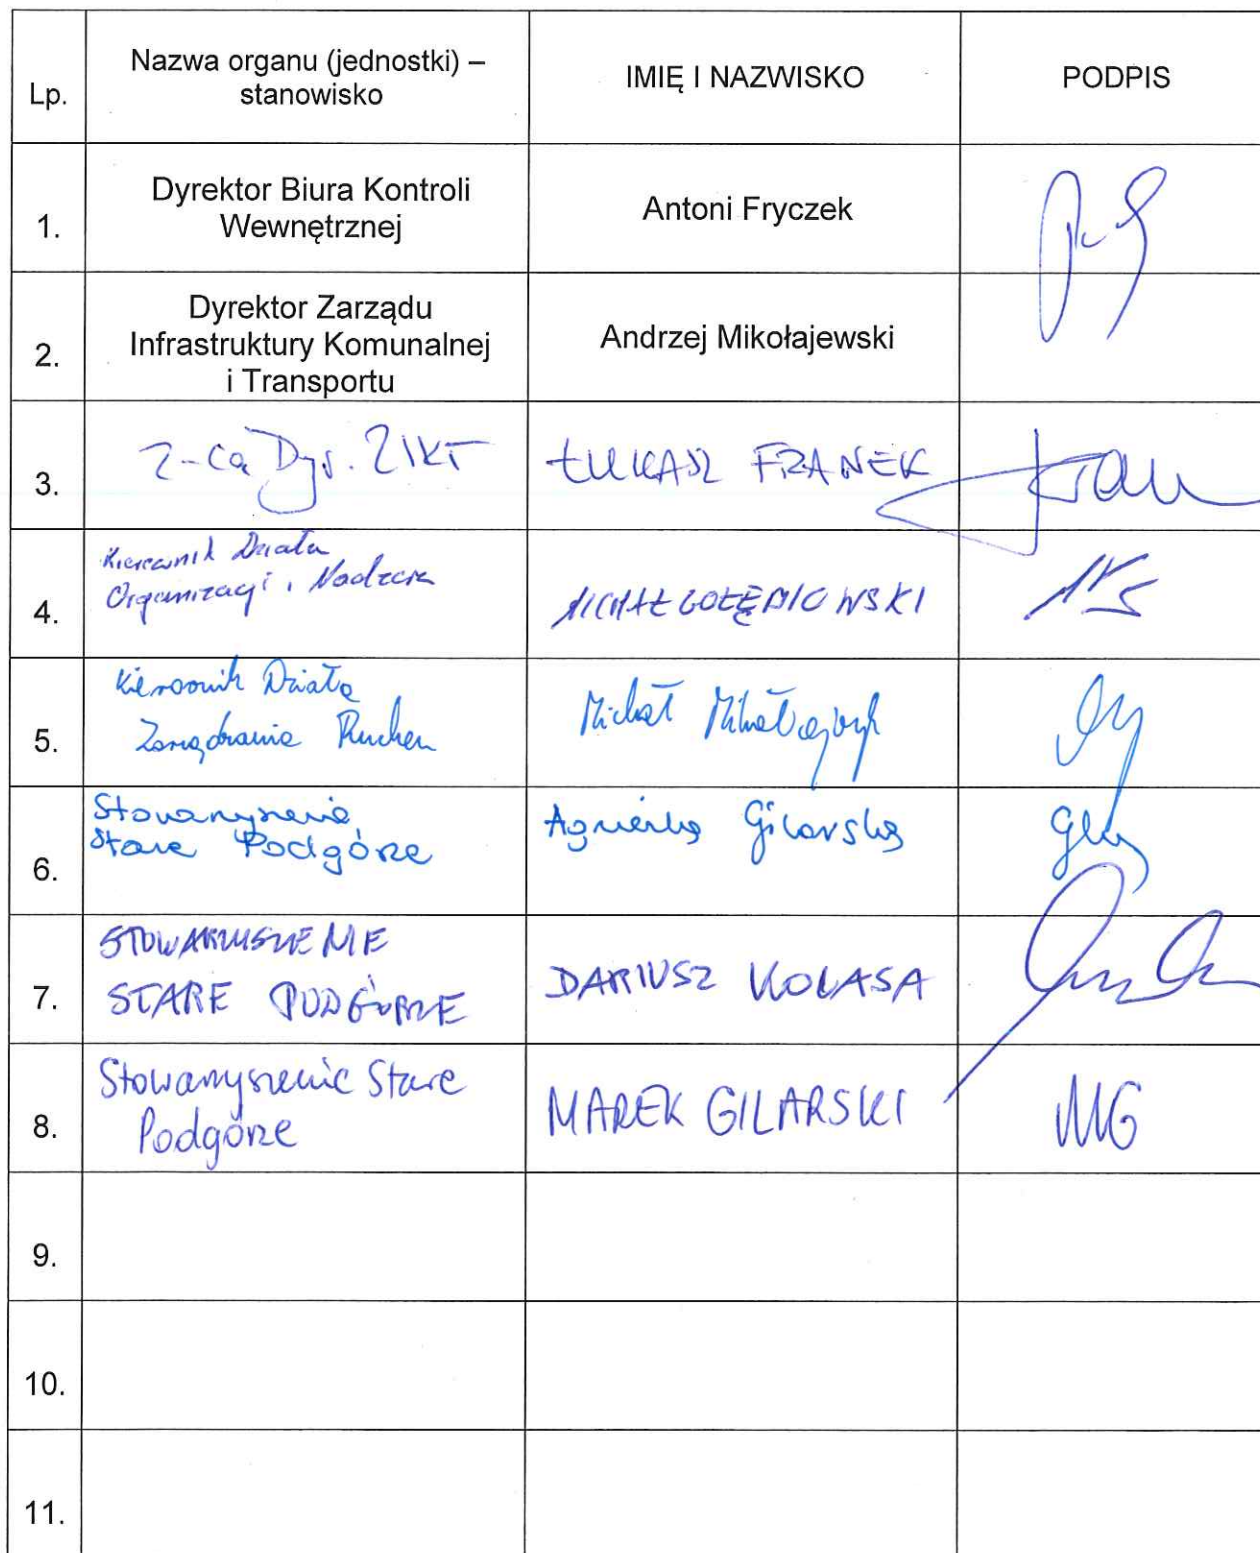 Lp.
Nazwa organu (jednostki) –
stanowisko
IMIĘ I NAZWISKO
PODPIS
1.
Dyrektor Biura Kontroli
Wewnętrznej
Antoni Fryczek
2.
Dyrektor Zarządu
Infrastruktury Komunalnej
i Transportu
Andrzej Mikołajewski
3.
Z-ca Dyr. ZIKT
ŁUKASZ FRANEK
4.
Kierownik Działu
Organizacji i Nadzoru
MICHAŁ GOŁĘBIOWSKI
5.
Kierownik Działu
Zarządzania Ruchem
Michał
6.
Stowarzyszenie
Stare Podgórze
Agnieszka Gilarska
7.
STOWARZYSZENIE
STARE PODGÓRZE
DARIUSZ KOLASA
8.
Stowarzyszenie Stare
Podgórze
MAREK GILARSKI
MG
9.
10.
11.